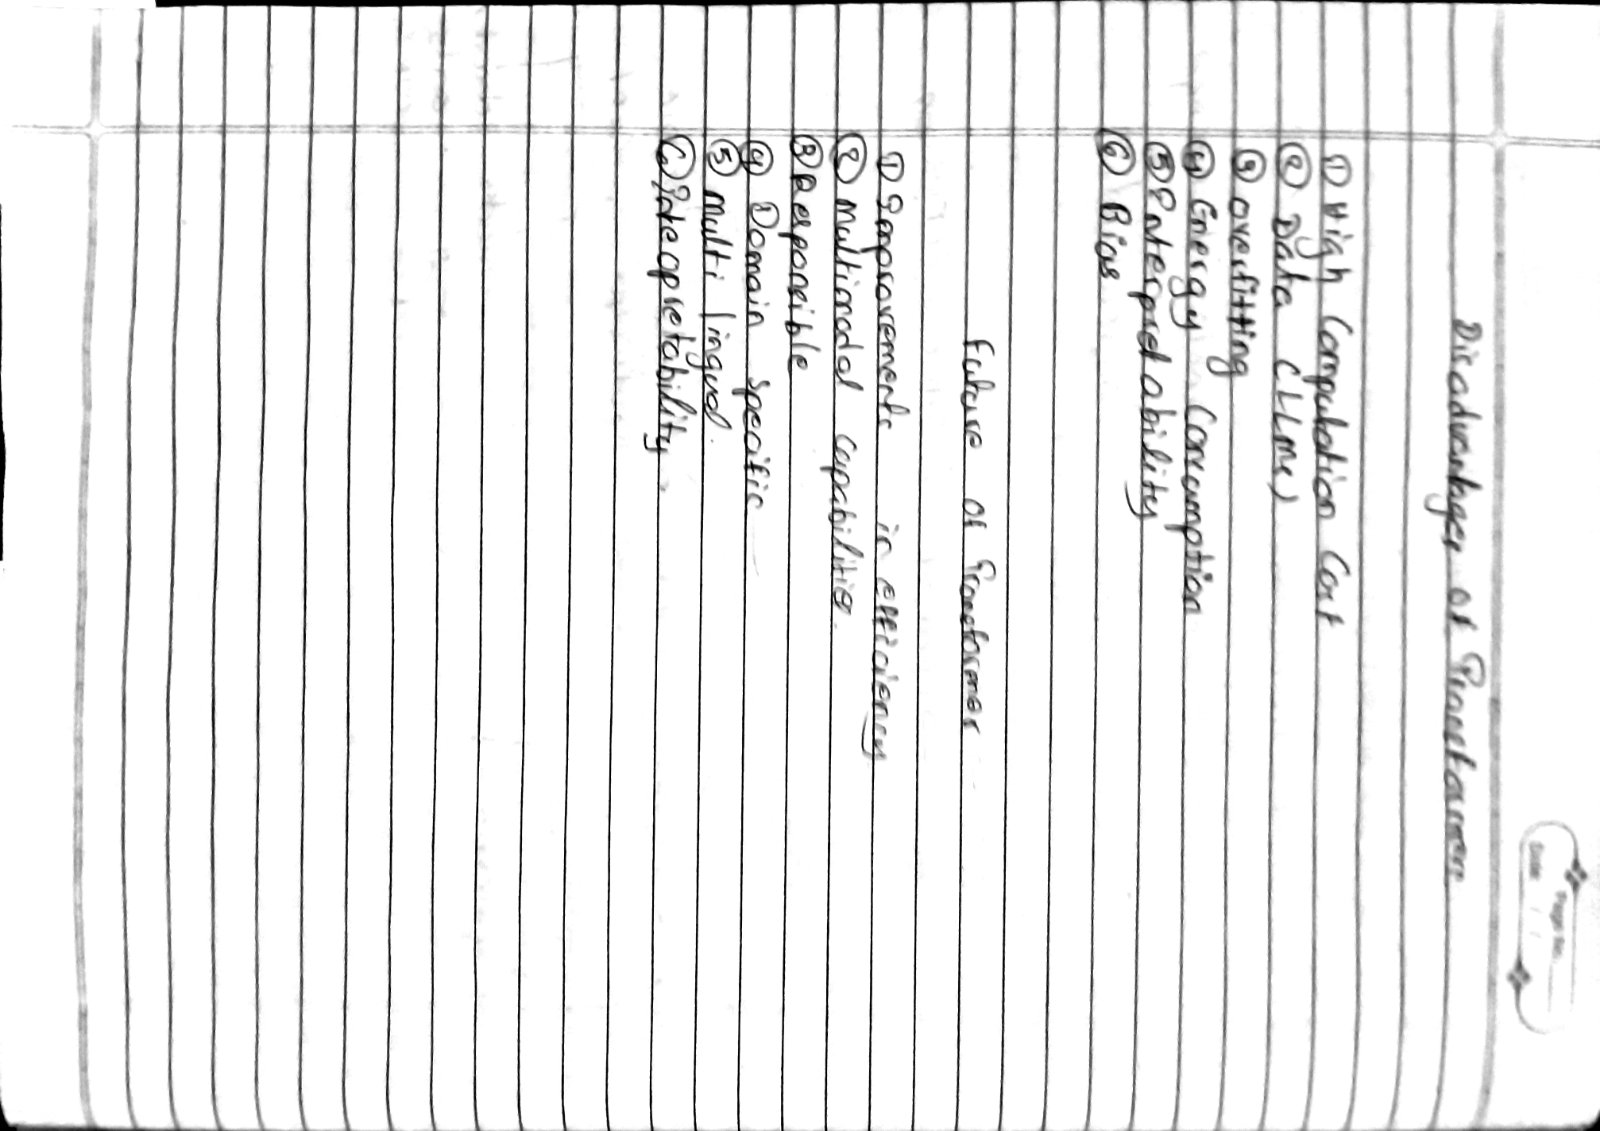 Page No.
Date / /
Disadvantages of Transformers
① High Computation Cost
② Data (LLMs)
③ overfitting
④ Energy Consumption
⑤ Interpretability
⑥ Bias
Future of Transformer
① Improvements in efficiency
② Multimodal capabilities.
③ Responsible
④ Domain specific
⑤ Multi lingual.
⑥ Interpretability